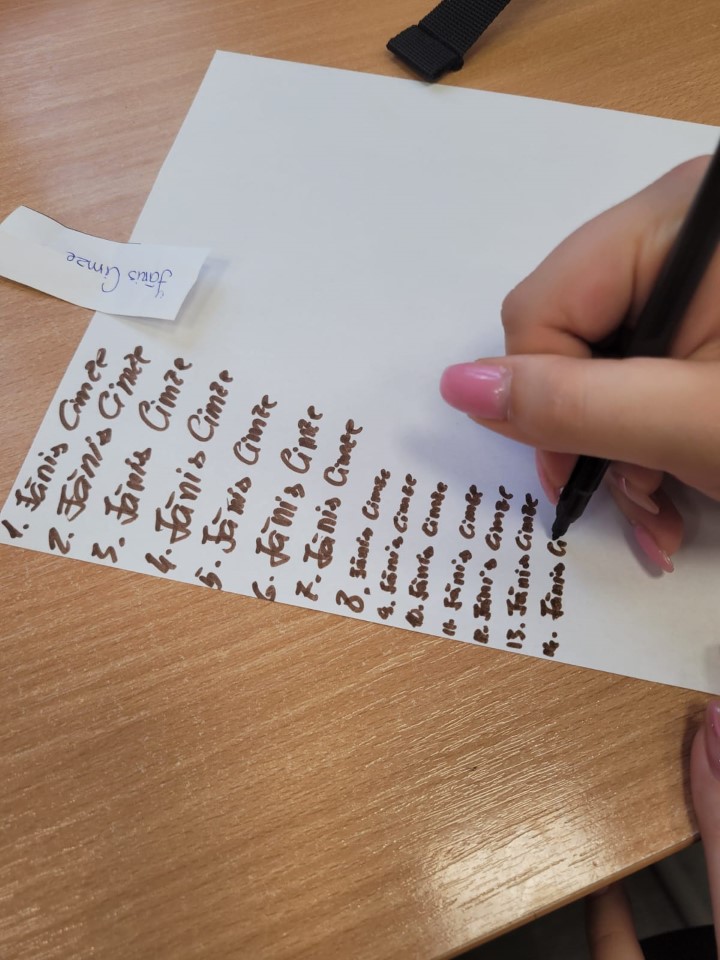 Jānis Cimze
1. Jānis Cimze
2. Jānis Cimze
3. Jānis Cimze
4. Jānis Cimze
5. Jānis Cimze
6. Jānis Cimze
7. Jānis Cimze
8. Jānis Cimze
9. Jānis Cimze
10. Jānis Cimze
11. Jānis Cimze
12. Jānis Cimze
13. Jānis Cimze
14. Jānis C